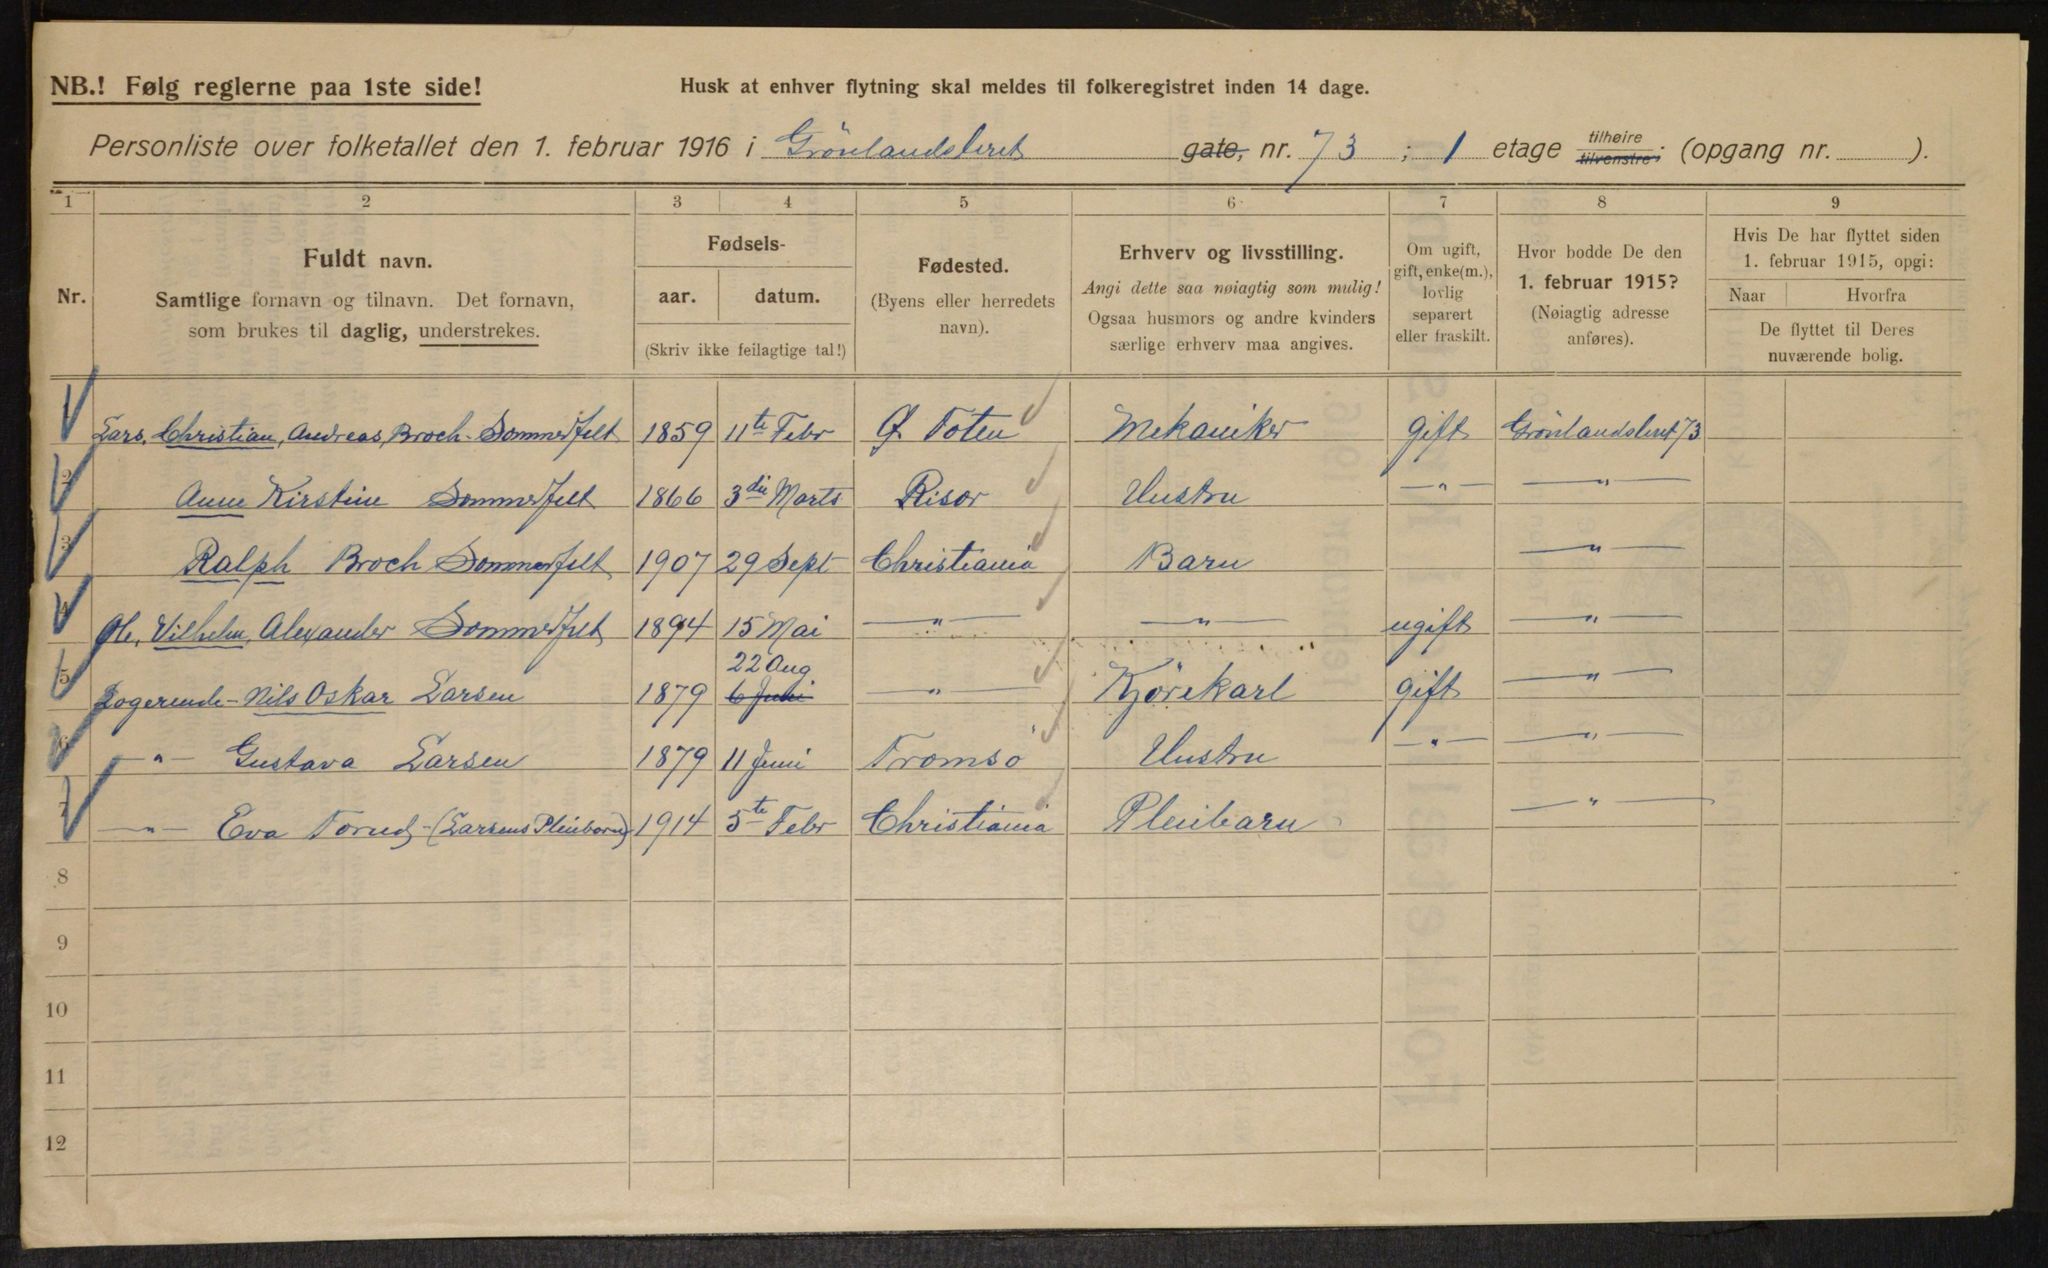 NB.! Følg reglerne paa 1ste side!
Husk at enhver flytning skal meldes til folkeregistret inden 14 dage.
Personliste over folketallet den 1. februar 1916 i Grönlandsleret gate, nr. 73 ; 1 etage tilhøire tilvenstre; (opgang nr. ).
1 2 3 4 5 6 7 8 9
Nr.
Fuldt navn.
Samtlige fornavn og tilnavn. Det fornavn,
som brukes til daglig, understrekes.
Fødsels-
aar. datum.
(Skriv ikke feilagtige tal!)
Fødested.
(Byens eller herredets
navn).
Erhverv og livsstilling.
Angi dette saa nøiagtig som mulig!
Ogsaa husmors og andre kvinders
særlige erhverv maa angives.
Om ugift,
gift, enke(m.),
lovlig
separert
eller fraskilt.
Hvor bodde De den
1. februar 1915?
(Nøiagtig adresse
anføres).
Hvis De har flyttet siden
1. februar 1915, opgi:
Naar Hvorfra
De flyttet til Deres
nuværende bolig.
1 Lars, Christian, Andreas, Broch-Sommerfelt 1859 11te Febr Ø. Toten Mekaniker gift Grönlandsleret 73
2 Anne Kirstine Sommerfelt 1866 3die Marts Risör Hustru — " — — " —
3 Ralph Broch Sommerfelt 1907 29 Sept Christiania Barn — " —
4 Ole, Vilhelm, Alexander Sommerfelt 1894 15 Mai — " — — " — ugift — " —
22 Aug
5 Logerende - Nils Oskar Larsen 1879 6 Juni — " — Kjörekarl gift — " —
6 — " — Gustava Larsen 1879 11 Juni Tromsö Hustru — " — — " —
7 — " — Eva Torud - (Larsens Pleiebarn) 1914 5te Febr Christiania Pleibarn — " —
8
9
10
11
12